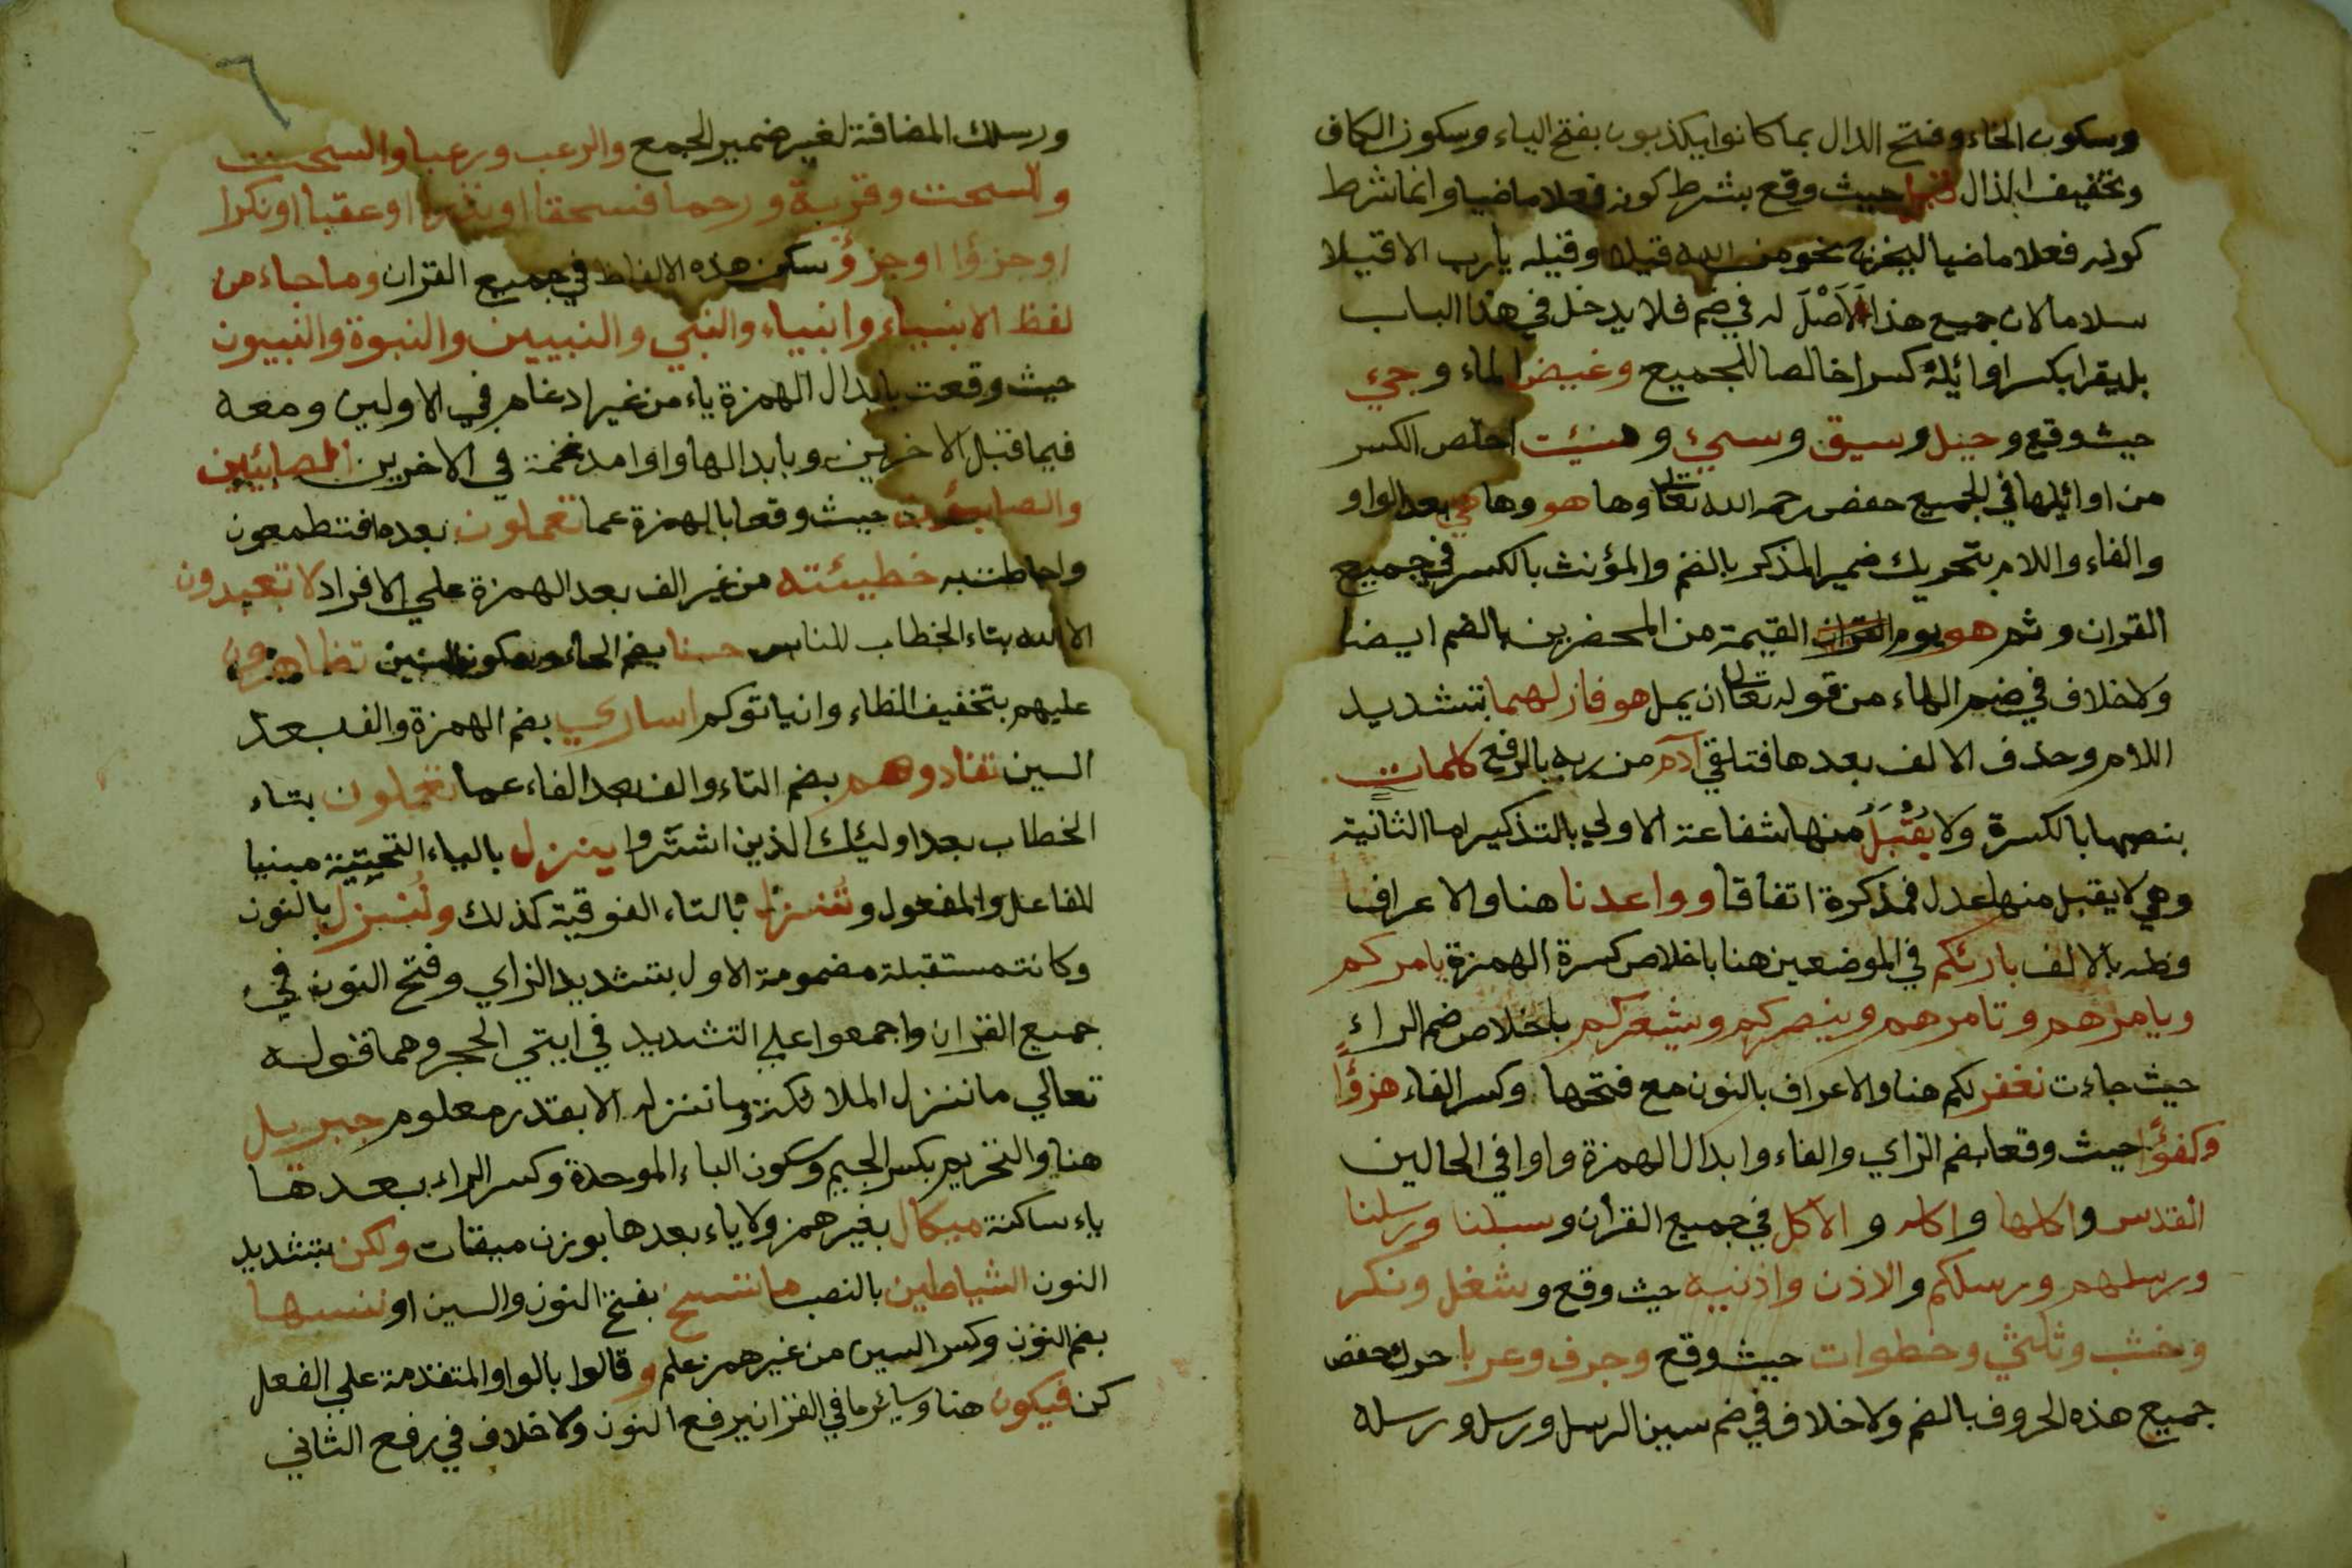 وسكون الخاء وفتح الدال بما كانوا يكذبون بفتح الياء وسكون الكاف
وتخفيف الذال قيل حيث وقع بشرط كونه فعلا ماضيا وانما شرط
كونه فعلا ماضيا ليخرج نحو من الله قيلا وقيله يارب الا قيلا
سلاما لان جميع هذا لَاأَصْلَ له في ضم فلا يدخل في هذا الباب
بل يقرا بكسر اوائله كسرا خالصا للجميع وغيض الماء وجيء
حيث وقع وحيل وسيق وسيء وسيئت اخلص الكسر
من اوائلها في الجميع حفص رحمه الله تعالى وها هو وها هي بعد الواو
والفاء واللام بتحريك ضمير المذكر بالضم والمؤنث بالكسر في جميع
القران وثم هو يوم القيمة من المحضرين بالضم ايضا
ولا خلاف في ضم الهاء من قوله تعالى ان يمل هو فازلهما بتشديد
اللام وحذف الالف بعدها فتلقي آدم من ربه بالرفع كلمات
بنصبها بالكسرة ولا يُقْبَلُ منها شفاعة الاولي بالتذكير اما الثانية
وهي لا يقبل منها عدل فمذكرة اتفاقا وواعدنا هنا والاعراف
وطه بالالف بارئكم في الموضعين هنا باخلاص كسرة الهمزة يامركم
ويامرهم وتامرهم وينصركم ويشعركم باخلاص ضم الراء
حيث جاءت نغفر لكم هنا والاعراف بالنون مع فتحها وكسر الفاء هزؤًا
وكفؤًا حيث وقعا بضم الزاي والفاء وابدال الهمزة واوا في الحالين
القدس واكلها واكله والاكل في جميع القرآن وسبلنا ورسلنا
ورسلهم ورسلكم والاذن واذنيه حيث وقع وشغل ونكر
وخشب وثلثي وخطوات حيث وقع وجرف وعربا حرك حفص
جميع هذه الحروف بالضم ولا خلاف في ضم سين الرسل ورسل ورسله
٦
ورسلك المضافة لغير ضمير الجمع والرعب ورعبا والسحت
وللسحت وقربة ورحما فسحقا او نذرا او عقبا او نكرا
او جزؤا او جزؤ سكن هذه الالفاظ في جميع القران وما جاء من
لفظ الانبياء وانبياء والنبي والنبيين والنبوة والنبيون
حيث وقعت بابدال الهمزة ياء من غير ادغام في الاولين ومعه
فيما قبل الاخرين وبابدالها واوا مدغمة في الاخرين الصابئين
والصابئون حيث وقعا بالهمزة عما تعملون بعده افتطمعون
واحاطت به خطيئته من غير الف بعد الهمزة علي الافراد لا تعبدون
الا الله بتاء الخطاب للناس حسنا بضم الحاء وسكون السين تظاهرون
عليهم بتخفيف الظاء وان ياتوكم اساري بضم الهمزة والف بعد
السين تفادوهم بضم التاء والف بعد الفاء عما تعملون بتاء
الخطاب بعد اوليك الذين اشتروا ينزل بالياء التحتية مبنيا
للفاعل والمفعول وتنزل بالتاء الفوقية كذلك وننزل بالنون
وكانت مستقبلة مضمومة الاول بتشديد الزاي وفتح النون في
جميع القران واجمعوا علي التشديد في ايتي الحجر وهما قوله
تعالي ما ننزل الملائكة وما ننزله الا بقدر معلوم جبريل
هنا والتحريم بكسر الجيم وسكون الباء الموحدة وكسر الراء بعدها
ياء ساكنة ميكال بغير همز ولا ياء بعدها بوزن ميقات ولكن بتشديد
النون الشياطين بالنصب ما ننسخ بفتح النون والسين او ننسها
بضم النون وكسر السين من غير همز علم وقالوا بالواو المتقدمة علي الفعل
كن فيكون هنا وسائر ما في القران يرفع النون ولا خلاف في رفع الثاني